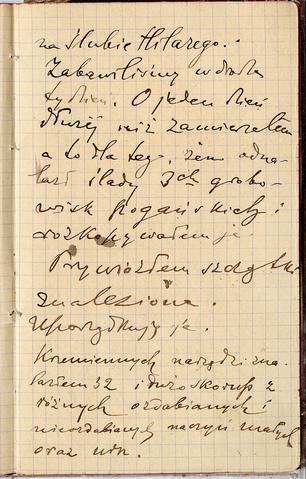 na ślubie Hilarego.
Zabawiliśmy w drodze
tydzień. O jeden dzień
dłużej niż zamierzałem
a to dla tego, żem odna-
lazł ślady 3ch grobo-
wisk pogańskich i
rozkopywałem je.
Przywiozłem szczątki
znalezione.
Uporządkuję je.
Krzemiennych narzędzi zna-
lazłem 32 i dużo skorup z
różnych ozdabianych i
nieozdabianych naczyń małych
oraz urn.